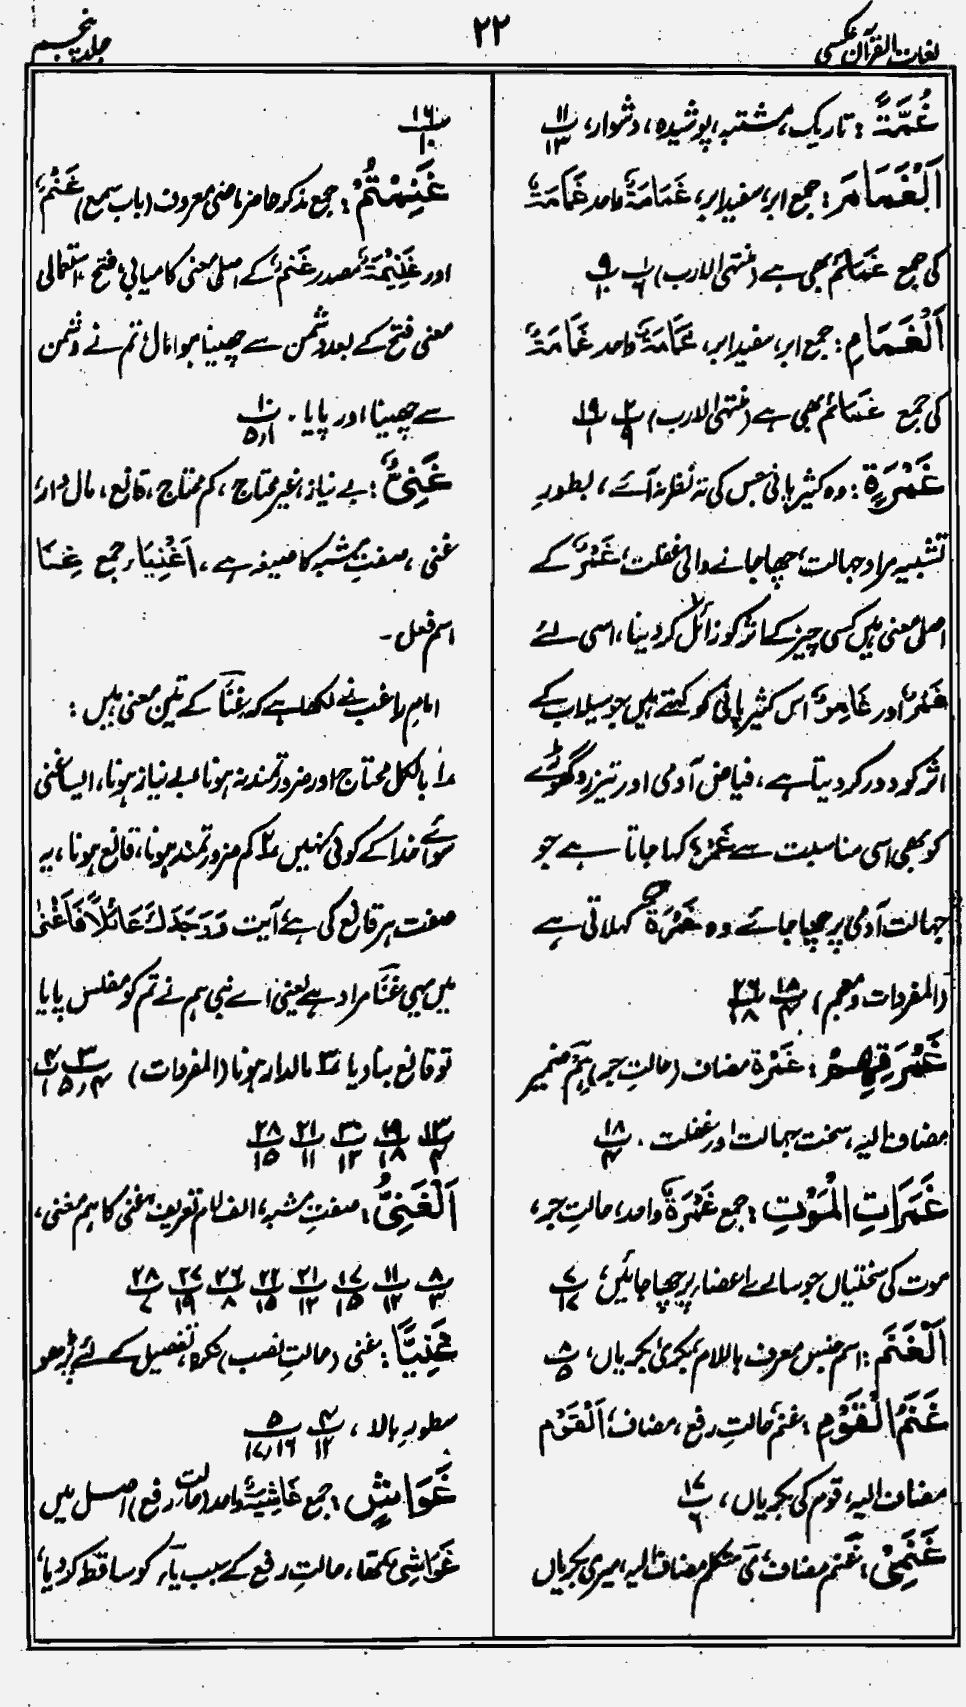 لغات القرآن عکسی
۲۲
جلد پنجم
غُمَّةً : تاریک، مشتبہ، پوشیدہ، دشوار، پ۱۱/۱۳
اَلْغَمَامَ : جمع ابر، سفید ابر، غَمَامَۃٌ واحد غَمَامَۃٌ
کی جمع غَمَائِمُ بھی ہے (منتہی الارب) پ۱/۶ پ۹/۱۰
اَلْغَمَامِ : جمع ابر، سفید ابر، غَمَامَۃٌ واحد غَمَامَۃٌ
کی جمع غَمَائِمُ بھی ہے (منتہی الارب) پ۲/۹ پ۱۹/۱
غَمْرَةٍ : وہ کثیر پانی جس کی تہ نظر نہ آئے، بطور
تشبیہ مراد جہالت، چھا جانے والی غفلت، غَمْرٌ کے
اصلی معنی ہیں کسی چیز کے اثر کو زائل کر دینا، اسی لئے
غَمْرٌ اور غَامِرٌ اس کثیر پانی کو کہتے ہیں جو سیلاب کے
اثر کو دور کر دیتا ہے، فیاض آدمی اور تیز رو گھوڑے
کو بھی اسی مناسبت سے غَمْرٌ کہا جاتا ہے جو
جہالت آدمی پر چھا جائے وہ غَمْرَۃٌ کہلاتی ہے
(المفردات ومعجم) پ۱۸/۴ پ۲۶/۱۸
غَمْرَتِهِمْ : غَمْرَة مضاف (حالتِ جر) ہِمْ ضمیر
مضاف الیہ، سخت جہالت اور غفلت۔ پ۱۸/۴
غَمَرَاتِ الْمَوْتِ : جمع غَمْرَةٌ واحد، حالتِ جر،
موت کی سختیاں جو سارے اعضاء پر چھا جائیں، پ۷/۱۷
اَلْغَنَمِ : اسم جنس معرف باللام بکری، بکریاں، پ۸/۵
غَنَمُ الْقَوْمِ : غنم حالتِ رفع، مضاف، اَلْقَوْم
مضاف الیہ، قوم کی بکریاں، پ۱۷/۶
غَنَمِیْ : غنم مضاف، ی متکلم مضاف الیہ، میری بکریاں
پ۱۶/۱۰
غَنِمْتُمْ : جمع مذکر حاضر ماضی معروف (باب سمع) غَنْمٌ
اور غَنِیْمَۃٌ مصدر غَنْمٌ کے اصلی معنی کامیابی، فتح، استعمالی
معنی فتح کے بعد دشمن سے چھینا ہوا مال، تم نے دشمن
سے چھینا اور پایا۔ پ۱۰/۱،۵
غَنِیٌّ : بے نیاز، غیر محتاج، کم محتاج، قانع، مال دار،
غنی، صفتِ مشبہ کا صیغہ ہے، اَغْنِیَاء جمع غِنَا
اسم فعل۔
امام راغب نے لکھا ہے کہ غِنَا کے تین معنی ہیں :
۱؎ بالکل محتاج اور ضرورتمند نہ ہونا، بے نیاز ہونا، ایسا غنی
سوائے خدا کے کوئی نہیں ۲؎ کم ضرورتمند ہونا، قانع ہونا، یہ
صفت ہر قانع کی ہے، آیت وَوَجَدَكَ عَائِلًا فَاَغْنٰی
میں یہی غنا مراد ہے یعنی اے نبی ہم نے تم کو مفلس پایا
تو قانع بنا دیا ۳؎ مالدار ہونا (المفردات) پ۳/۴،۵ پ۴/۱
پ۱۳/۴ پ۱۹/۱۸ پ۲۰/۱۳ پ۲۱/۱۱ پ۲۸/۱۵
اَلْغَنِیُّ : صفتِ مشبہ، الف لام تعریف، غنی کا ہم معنی،
پ۸/۳ پ۱۱/۱۲ پ۱۷/۱۵ پ۲۱/۱۲ پ۲۲/۱۵ پ۲۶/۸ پ۲۷/۱۹ پ۲۸/۷
غَنِيًّا : غنی (حالتِ نصب) نکرہ، تفصیل کے لئے پڑھو
سطور بالا، پ۴/۱۲ پ۵/۱۶،۱۷
غَوَاشٍ : جمع غَاشِیَۃٌ واحد (حالت رفع) اصل میں
غَوَاشِیُ تھا، حالتِ رفع کے سبب یاء کو ساقط کر دیا،